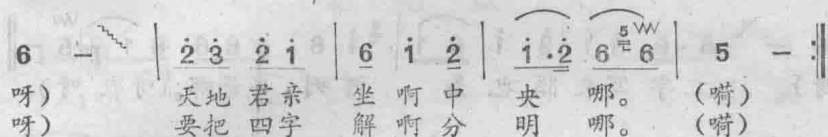 6 - | 2̇ 3̇ 2̇ 1̇ | 6 1̇ 2̇ | 1̇ · 2̇ 6 5 6 | 5 - :‖
呀） 天地君亲 坐啊中 央 哪。 （嗬）
呀） 要把四字 解啊分 明 哪。 （嗬）